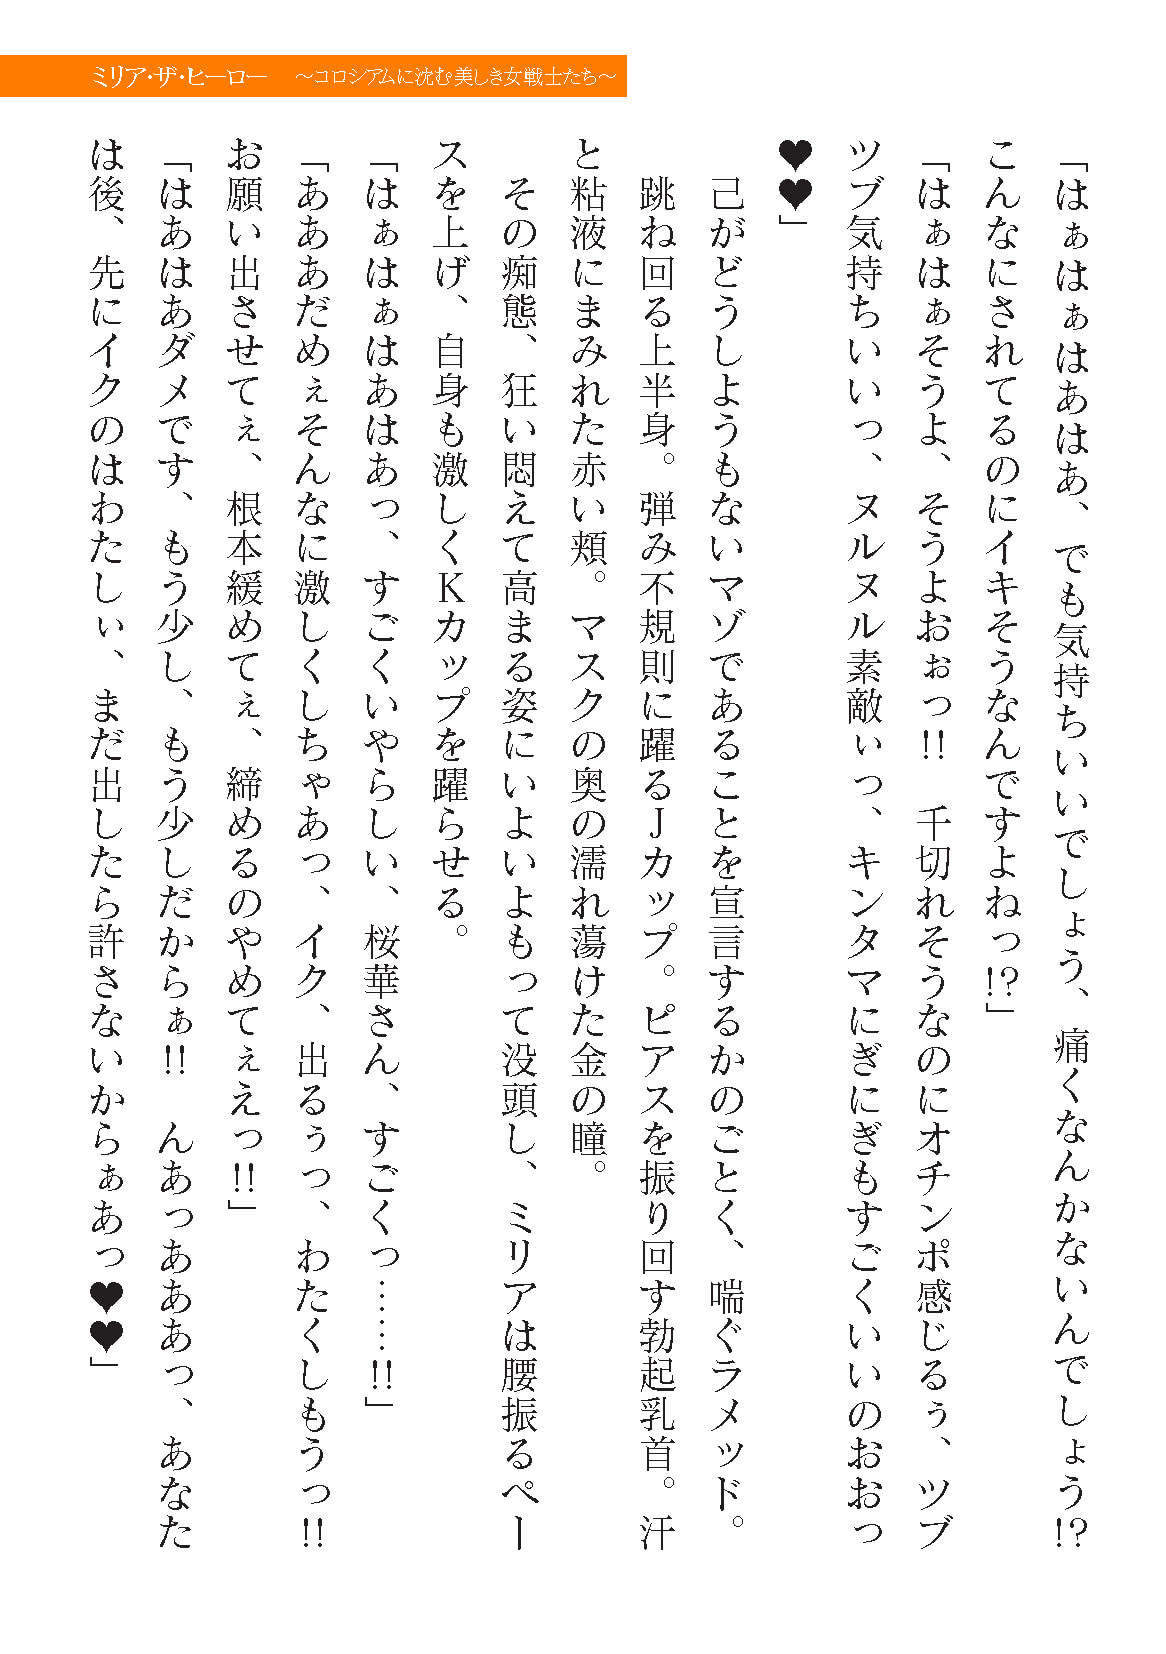 ミリア・ザ・ヒーロー　～コロシアムに沈む美しき女戦士たち～
「はぁはぁはあはあ、でも気持ちいいでしょう、痛くなんかないんでしょう!?
こんなにされてるのにイキそうなんですよねっ!?」
「はぁはぁそうよ、そうよおぉっ!!　千切れそうなのにオチンポ感じるぅ、ツブ
ツブ気持ちいいっ、ヌルヌル素敵ぃっ、キンタマにぎにぎもすごくいいのおおっ
♥♥」
　己がどうしようもないマゾであることを宣言するかのごとく、喘ぐラメッド。
　跳ね回る上半身。弾み不規則に躍るＪカップ。ピアスを振り回す勃起乳首。汗
と粘液にまみれた赤い頬。マスクの奥の濡れ蕩けた金の瞳。
　その痴態、狂い悶えて高まる姿にいよいよもって没頭し、ミリアは腰振るペー
スを上げ、自身も激しくＫカップを躍らせる。
「はぁはぁはあはあっ、すごくいやらしい、桜華さん、すごくっ……!!」
「あああだめぇそんなに激しくしちゃあっ、イク、出るぅっ、わたくしもうっ!!
お願い出させてぇ、根本緩めてぇ、締めるのやめてぇえっ!!」
「はあはあダメです、もう少し、もう少しだからぁ!!　んあっあああっ、あなた
は後、先にイクのはわたしぃ、まだ出したら許さないからぁあっ♥♥」